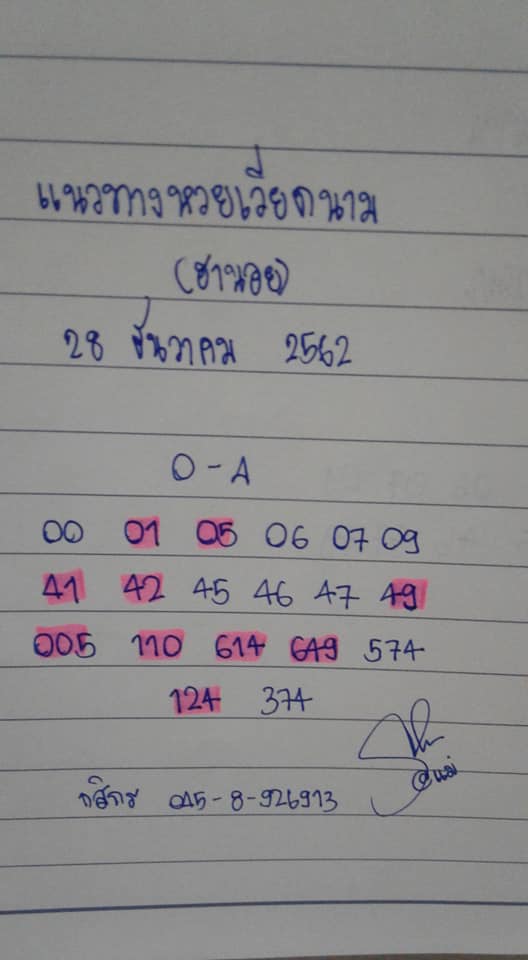 แนวทางหวยเวียดนาม
(ฮานอย)
28 ธันวาคม 2562
0-4
00 01 05 06 07 09
41 42 45 46 47 49
005 110 614 649 574
124 374
กสิกร 045-8-926913
@แม่